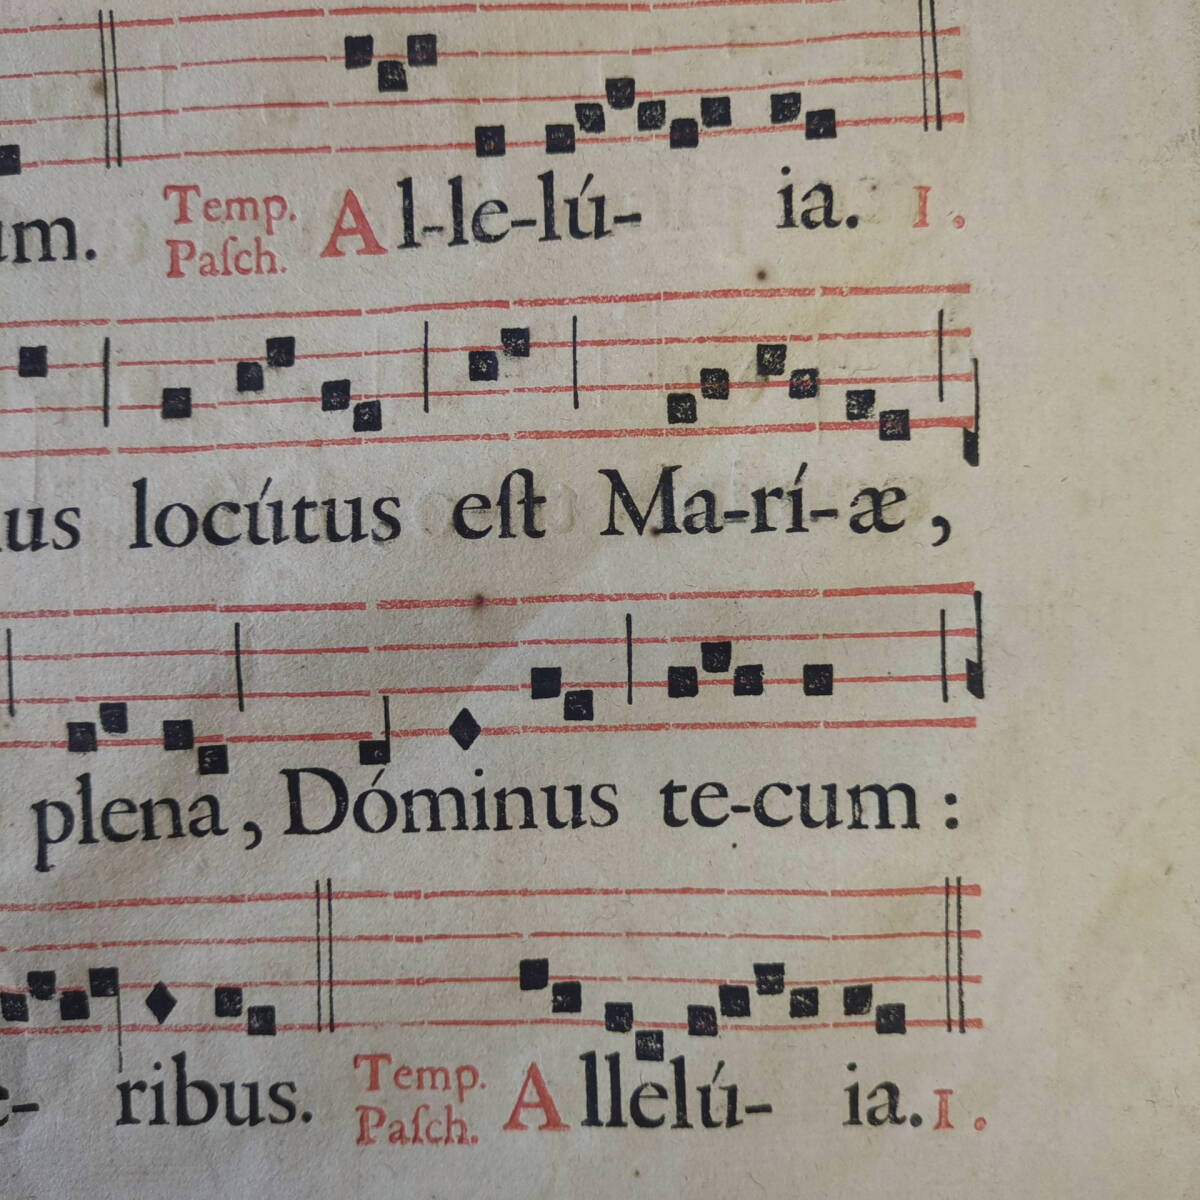 um. Temp. Paſch. Al-le-lú- ia. I.
us locútus eſt Ma-rí-æ,
plena, Dóminus te-cum:
e- ribus. Temp. Paſch. Allelú- ia. I.